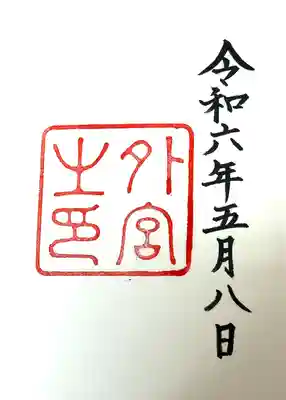 令和六年五月八日
外宮
之印